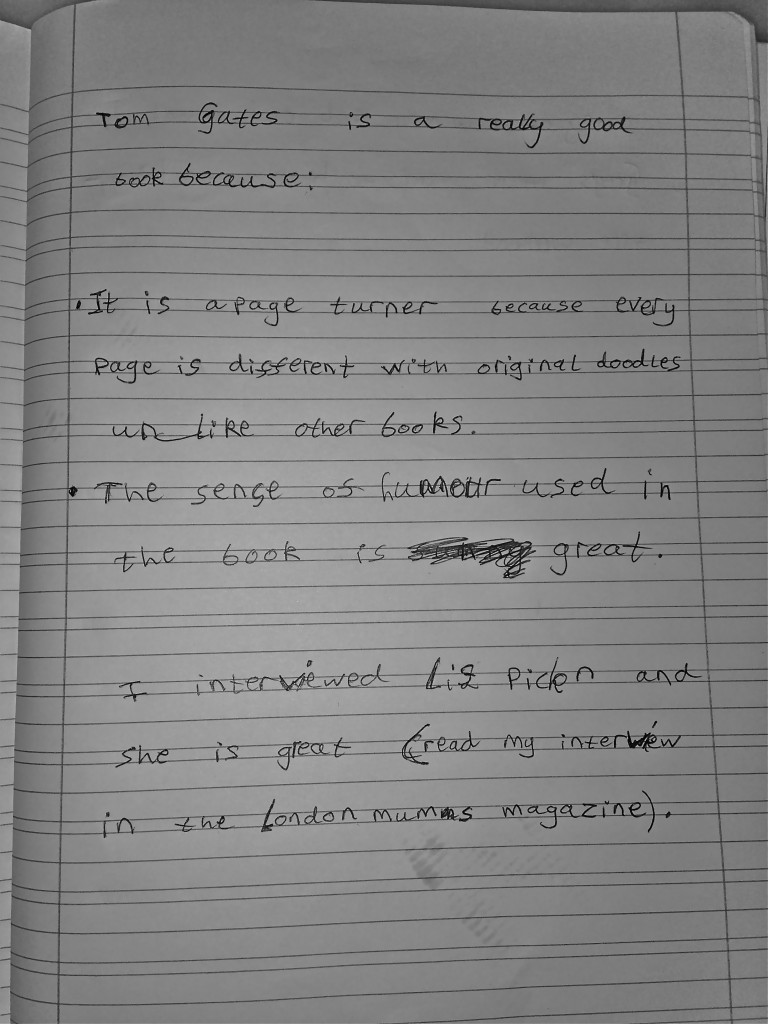 Tom Gates is a really good
book because:
• It is a page turner because every
page is different with original doodles
un like other books.
• The sense of humour used in
the book is great.
I interviewed Liz Picken and
she is great (read my interview
in the London mums magazine).